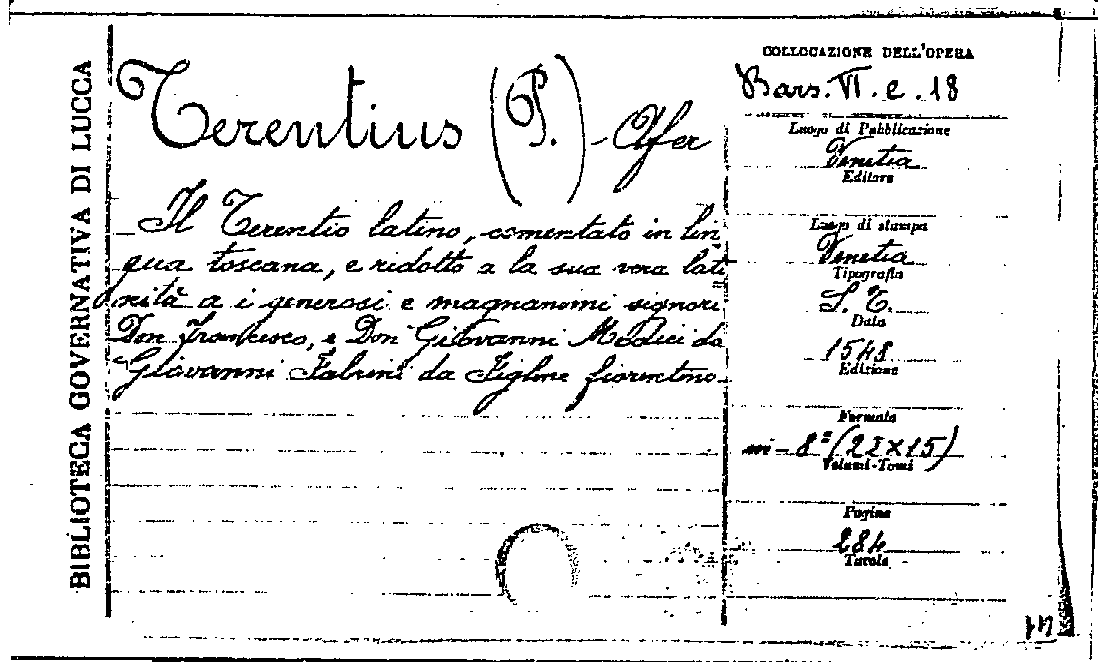 BIBLIOTECA GOVERNATIVA DI LUCCA
Terentius (P.) - Afer
Il Terentio latino, comentato in lin
gua toscana, e ridotto a la sua vera lati
nità a i generosi e magnanomi signori
Don Francesco, e Don Giovanni Medici da
Giovanni Fabrini da Figline fiorentino.
COLLOCAZIONE DELL'OPERA
Bars. VI. e. 18
Luogo di Pubblicazione
Venetia
Editore
Luogo di stampa
Venetia
Tipografia
S. T.
Data
1548
Edizione
Formato
in - 8º (21×15)
Volumi-Tomi
Pagine
284
Tavole